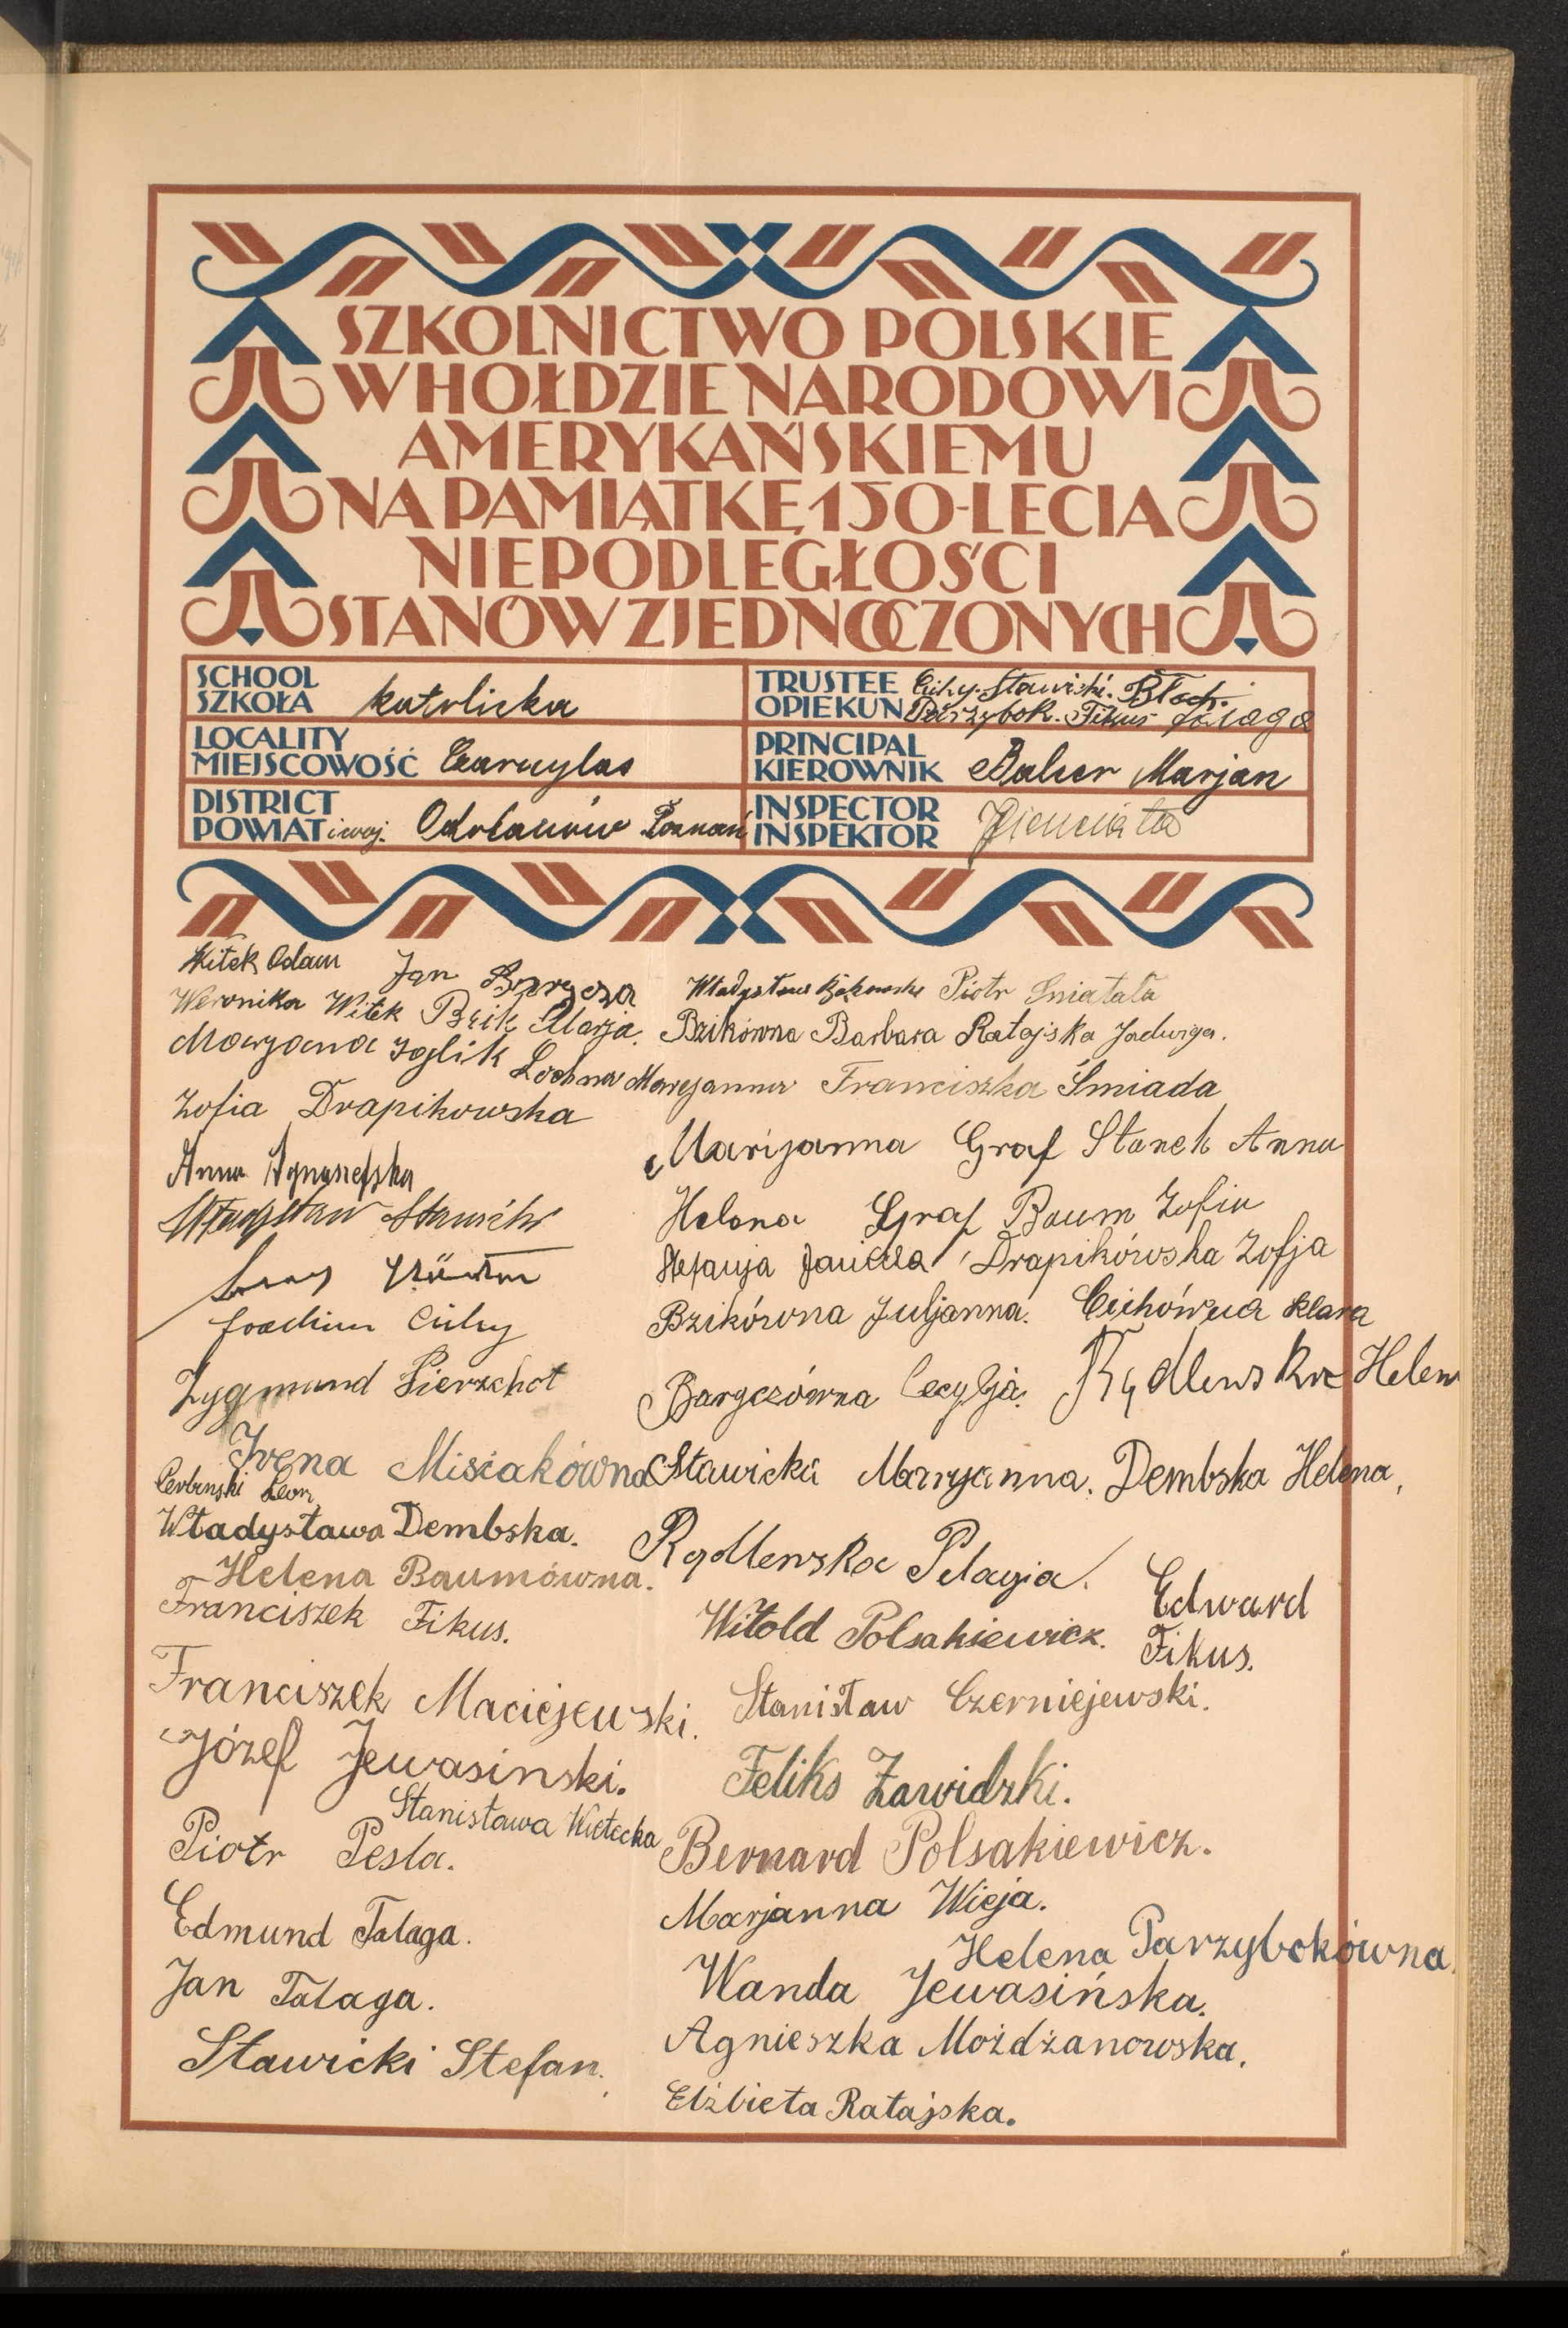 SZKOLNICTWO POLSKIE
W HOŁDZIE NARODOWI
AMERYKAŃSKIEMU
NA PAMIĄTKĘ 150-LECIA
NIEPODLEGŁOŚCI
STANÓW ZJEDNOCZONYCH
SCHOOL
SZKOŁA katolicka
TRUSTEE Cichy. Stawicki. Błoch.
OPIEKUN Parzybok. Fikus Talaga
LOCALITY
MIEJSCOWOŚĆ Czarnylas
PRINCIPAL
KIEROWNIK Balcer Marjan
DISTRICT
POWIAT i woj. Odolanów Poznań
INSPECTOR
INSPEKTOR
Witek Adam Jan Barycza
Weronika Witek Bzik Marja.
Maryana Jglik Lochna Maryanna
Zofia Drapikowska
Anna
Władysław Stawicki
Joachim Cichy
Zygmund Pierzchot
Irena Misiakówna
Leon
Władysława Dembska.
Helena Baumówna.
Franciszek Fikus.
Franciszek Maciejewski.
Józef Jewasinski.
Stanisława Wietecka
Piotr Pesla.
Edmund Talaga.
Jan Talaga.
Stawicki Stefan.
Władysław Piotr Sniatała
Bzikówna Barbara Ratajska Jadwiga.
Franciszka Śmiada
Marijanna Graf Stanek Anna
Helena Graf Baum Zofia
Stefanja Drapikówska Zofja
Bzikówna Juljanna. Cichówna Klara
Baryczówna Cecylja. Rądlewska Helen
Stawicka Marryanna. Dembska Helena,
Rądlewska Pelagia.
Edward
Fikus.
Witold Polsakiewicz.
Stanisław Czerniejewski.
Feliks Zawidzki.
Bernard Polsakiewicz.
Marjanna Wieja.
Helena Parzybokówna.
Wanda Jewasińska.
Agnieszka Możdżanowska.
Elżbieta Ratajska.